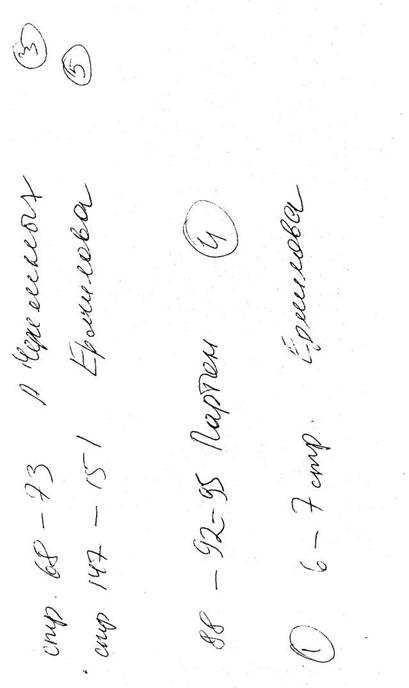 стр. 68 – 73 Черемных ③
стр 147 – 151 Ермилова ⑤
88 – 92 – 95 Партен ④
① 6 – 7 стр. Ермилова